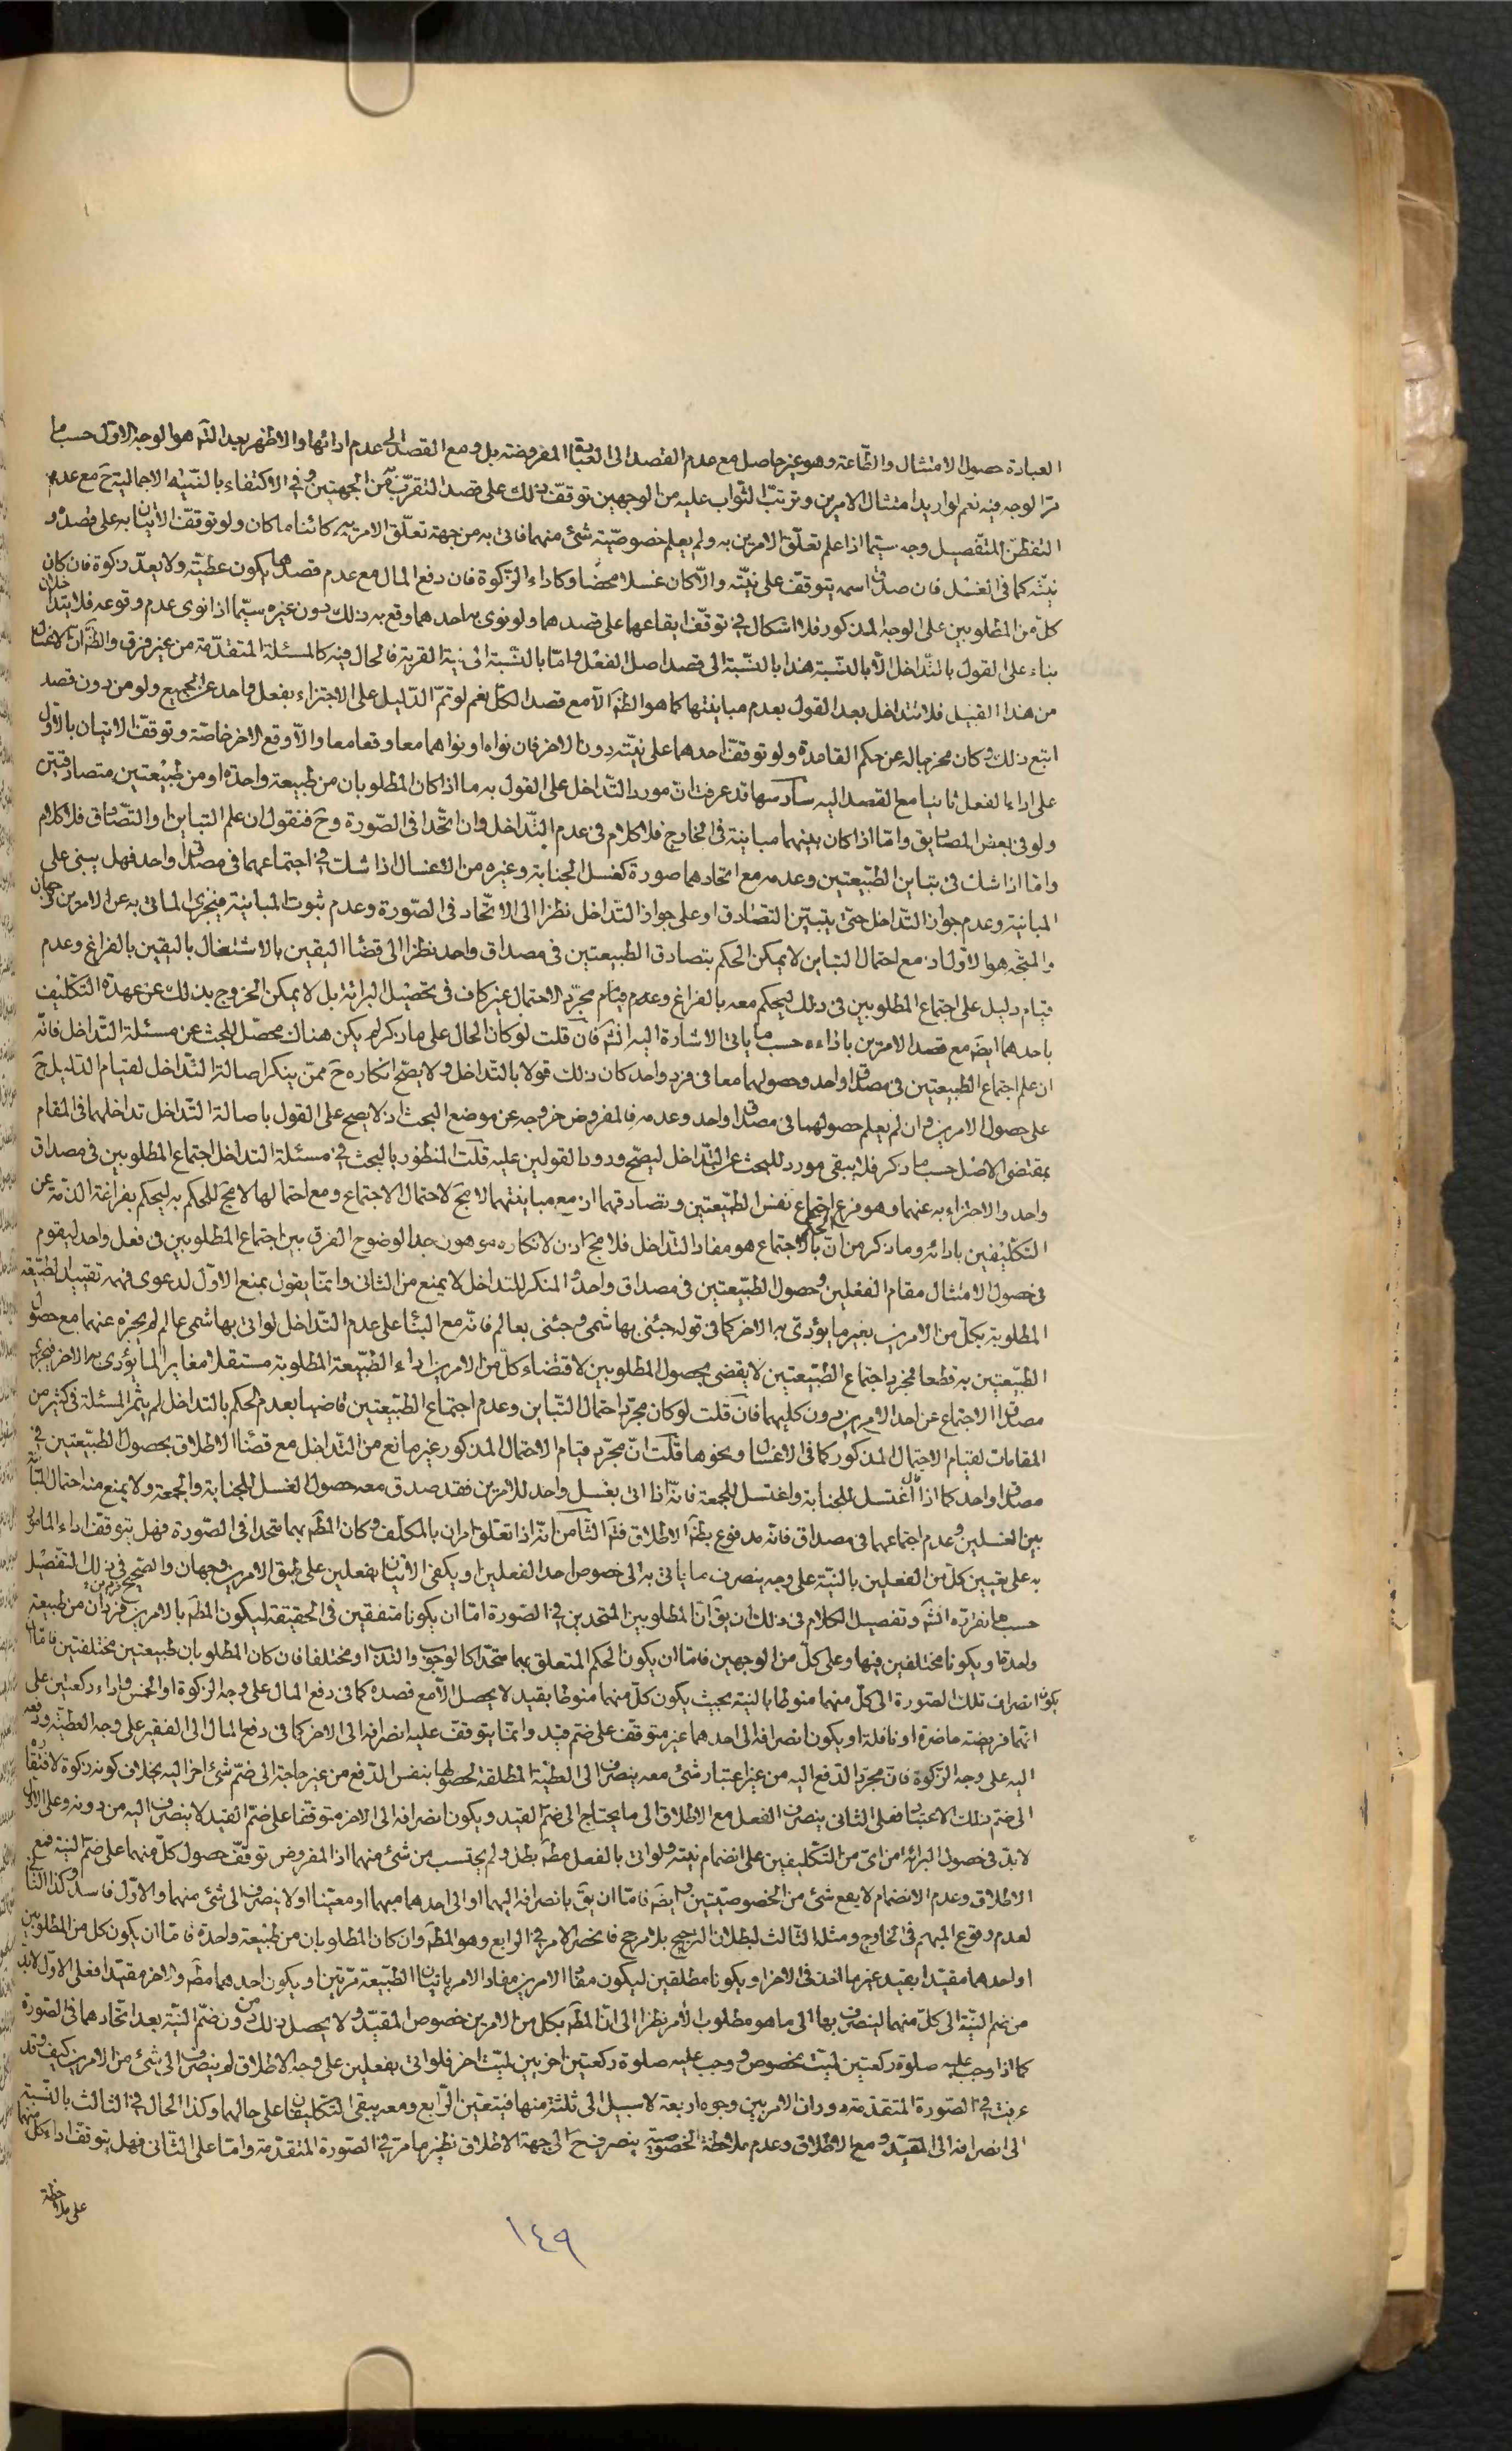 العبادة حصول الامتثال والطّاعة وهو غير حاصل مع عدم القصد الى العبادة المفروضة بل ومع القصد الى عدم ادائها والاظهر بعد التّم هو الوجه الاوّل حسب ما
مرّ الوجه فيه نعم لو اريد امتثال الامرين وترتّب الثّواب عليه من الوجهين توقّف ذلك على قصد التقرّب من الجهتين وفي الاكتفاء بالنيّة الاجمالية ح مع عدم
التفطّن للتّفصيل وجه سيّما اذا علم تعلّق الامرين به ولم يعلم خصوصيّة شئ منهما فاتى به من جهة تعلّق الامر به كائنا ما كان ولو توقّف الاتيان به على قصده و
نيّته كما في الغسل فان صدق اسمه يتوقّف على نيّته والّا كان غسلا محضا وكاداء الزكوة فان دفع المال مع عدم قصدها يكون عطيّة ولا يعدّ زكوة فان كان
كلّ من المطلوبين على الوجه المذكور فلا اشكال في توقّف ايقاعها على قصدهما ولو نوى به احدهما وقع به ذلك دون غيره سيّما اذا نوى عدم وقوعه فلا يتداخلان
بناء على القول بالتّداخل الّا بالنّسبة هذا بالنّسبة الى قصد اصل الفعل وامّا بالنّسبة الى نية القربة فالحال فيه كالمسئلة المتقدّمة من غير فرق والظّ انّ الاغسال
من هذا القبيل فلا تتداخل بعد القول بعدم مباينتها كما هو الظّ الّا مع قصد الكلّ نعم لو تمّ الدّليل على الاجتزاء بفعل واحد عن الجميع ولو من دون قصد
اتبع ذلك وكان مخرجا له عن حكم القاعدة ولو توقّف احدهما على نيّته دون الاخر فان نواه او نواهما معا وقعا معا والّا وقع الاخر خاصّة وتوقّف الاتيان بالاوّل
على اداء الفعل ثانيا مع القصد اليه سادسها قد عرفت انّ مورد التّداخل على القول به ما اذا كان المطلوبان من طبيعة واحدة او من طبيعتين متصادقتين
ولو في بعض المصاديق وامّا اذا كان بينهما مباينة في الخارج فلا كلام في عدم التّداخل وان اتّحدا في الصّورة وح فنقول ان علم التباين او التّصادق فلا كلام
وامّا اذا شك في تباين الطّبيعتين وعدمه مع اتحادهما صورة كغسل الجنابة وغيره من الاغسال اذا شك في اجتماعهما في مصداق واحد فهل يبنى على
المباينة وعدم جواز التّداخل حتّى يتبيّن التصادق او على جواز التداخل نظرا الى الاتّحاد في الصّورة وعدم ثبوت المباينة فيجزى الماتى به عن الامرين وجهان
والمتّجه هو الاوّل اذ مع احتمال التباين لا يمكن الحكم بتصادق الطبيعتين في مصداق واحد نظرا الى قضاء اليقين بالاشتغال باليقين بالفراغ وعدم
قيام دليل على اجتماع المطلوبين في ذلك ليحكم معه بالفراغ وعدم قيام مجرّد الاحتمال غير كاف في تحصيل البرائة بل لا يمكن الخروج بذلك عن عهدة التّكليف
باحدهما ايضا مع قصد الامرين باداءه حسب ما ياتى الاشارة اليه انش فان قلت لو كان الحال على ما ذكر لم يكن هناك محصّل للبحث عن مسئلة التّداخل فانّه
ان علم اجتماع الطبيعتين في مصداق واحد وحصولهما معا في فرد واحد كان ذلك قولا بالتّداخل ولا يصّح انكاره ح ممّن ينكر اصالة التّداخل لقيام الدّليل ح
على حصول الامرين وان لم يعلم حصولهما في مصداق واحد وعدمه فالمفروض خروجه عن موضع البحث اذ لا يصح على القول باصالة التّداخل تداخلهما في المقام
بمقتضى الاصل حسب ما ذكر فلا يبقى مورد للبحث عن التّداخل ليصّح ورود القولين عليه قلت المنظور بالبحث في مسئلة التداخل اجتماع المطلوبين في مصداق
واحد والاجتزاء به عنهما وهو فرع اجتماع نفس الطّبيعتين وتصادقهما اذ مع مباينتهما لا مج لاحتمال الاجتماع ومع احتمالها لا مج للحكم به ليحكم بفراغة الذّمة عن
التّكليفين بادائه وما ذكر من انّ الحكم بالاجتماع هو مفاد التداخل فلا مج اذن لانكاره موهون جدا لوضوح الفرق بين اجتماع المطلوبين في فعل واحد ليقوم
في حصول الامتثال مقام الفعلين وحصول الطّبيعتين في مصداق واحد والمنكر للتداخل لا يمنع من الثاني وانّما يقول بمنع الاوّل لدعوى فهمه تقييد الطّبيعة
المطلوبة بكلّ من الامرين بغير ما يؤدّى به الاخر كما في قوله جئنى بهاشمى وجئنى بعالم فانّه مع البناء على عدم التّداخل لو اتى بهاشمى عالم لم يجزه عنهما مع حصول
الطّبيعتين به قطعا فمجرد اجتماع الطّبيعتين لا يقضى بحصول المطلوبين لاقتضاء كلّ من الامرين اداء الطّبيعة المطلوبة مستقلا مغايرا لما يؤدى به الاخر فيجزى
مصداق الاجتماع عن احد الامرين دون كليهما فان قلت لو كان مجرّد احتمال التّباين وعدم اجتماع الطبيعتين قاضيا بعدم الحكم بالتداخل لم يثمر المسئلة في كثير من
المقامات لقيام الاحتمال المذكور كما في الاغسال ونحوها قلت انّ مجرّد قيام الاحتمال المذكور غير مانع من التّداخل مع قضاء الاطلاق بحصول الطّبيعتين في
مصداق واحد كما اذا قال اغتسل للجنابة واغتسل للجمعة فانّه اذا اتى بغسل واحد للامرين فقد صدق معه حصول الغسل للجنابة والجمعة ولا يمنع منه احتمال التباين
بين الغسلين وعدم اجتماعهما في مصداق فانّه مدفوع بظّ الاطلاق فتم الثّامن انّه اذا تعلّق امران بالمكلّف وكان المط بهما متحدا في الصّورة فهل يتوقّف اداء المامور
به على تعيين كلّ من الفعلين بالنيّة على وجه ينصرف ما ياتى به الى خصوص احد الفعلين او يكفى الاتيان بفعلين على طبق الامرين وجهان والصّحيح في ذلك التّفصيل
حسب ما نقرّره انش وتفصيل الكلام في ذلك ان يق انّ المطلوبين المتحدين في الصّورة امّا ان يكونا متفقين في الحقيقة ليكون المط بالامرين فردان من طبيعة
واحدة او يكونا مختلفين فيها وعلى كلّ من الوجهين فامّا ان يكون الحكم المتعلق بهما متحدا كالوجوب والندب او مختلفا فان كان المطلوبان طبيعتين مختلفتين فامّا ان
يكون انصراف تلك الصّورة الى كلّ منهما منوطا بالنية بحيث يكون كلّ منهما منوطا بقيد لا يحصل الّا مع قصده كما في دفع المال على وجه الزكوة او الخمس واداء ركعتين على
انّها فريضة حاضرة او نافلة او يكون انصرافه الى احدهما غير متوقّف على ضمّ قيد وانّما يتوقّف عليه انصرافه الى الاخر كما في دفع المال الى الفقير على وجه العطيّة ودفعه
اليه على وجه الزّكوة فانّ مجرّد الدّفع اليه من غير اعتبار شئ معه ينصرف الى العطيّة المطلقة لحصولها بنفس الدّفع من غير حاجة الى ضمّ شئ اخر اليه بخلاف كونه زكوة لافتقاره
الى ضمّ ذلك الاعتبار فعلى الثانى ينصرف الفعل مع الاطلاق الى ما لا يحتاج الى ضمّ القيد ويكون انصرافه الى الاخر متوقّفا على ضمّ القيد لا ينصرف اليه من دونه وعلى الاوّل
لا بدّ في حصول البرائة من اىّ من التّكليفين على انضمام نيته ولو اتى بالفعل مط بطل ولم يحتسب من شئ منهما اذ المفروض توقّف حصول كلّ منهما على ضمّ النية فمع
الاطلاق وعدم الانضمام لا يقع شئ من الخصوصيّتين وايض فامّا ان يق بانصرافه اليهما او الى احدهما مبهما او معيّنا او لا ينصرف الى شئ منهما والاوّل فاسد وكذا الثّانى
لعدم وقوع المبهم في الخارج ومثله الثالث لبطلان الترجيح بلا مرجح فانحصر الامر في الرابع وهو المط وان كان المطلوبان من طبيعة واحدة فامّا ان يكون كل من المطلوبين
او احدهما مقيّدا بقيد غير ما اخذ في الاخر او يكونا مطلقين ليكون مفاد الامرين مفاد الامر باتيان الطّبيعة مرّتين او يكون احدهما مط والاخر مقيّدا فعلى الاوّل لا بدّ
من ضم النيّة الى كلّ منهما لينصرف بها الى ما هو مطلوب الامر نظرا الى انّ المط بكل من الامرين خصوص المقيّد ولا يحصل ذلك من دون ضمّ النيّة بعد اتّحادهما في الصّورة
كما اذا وجب عليه صلوة ركعتين لميّت بخصوص ووجب عليه صلوة ركعتين اخريين لميّت اخر فلو اتى بفعلين على وجه الاطلاق لم ينصرف الى شئ من الامرين كيف وقد
عرفت في الصّورة المتقدّمة دوران الامر بين وجوه اربعة لا سبيل الى ثلثة منها فيتعيّن الرّابع ومعه يبقى التكليفان على حالهما وكذا الحال في الثالث بالنّسبة
الى انصرافه الى المقيّد ومع الاطلاق وعدم ملاحظة الخصوصية ينصرف ح الى جهة الاطلاق نظير ما مرّ في الصّورة المتقدّمة وامّا على الثّانى فهل يتوقّف اداء كلّ منهما
على ملاحظة
١٤٩